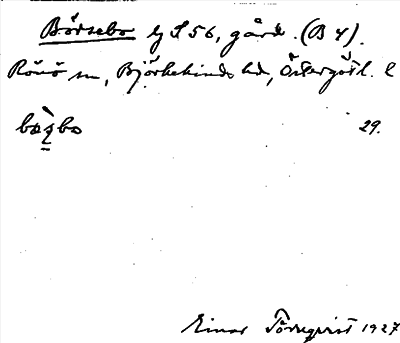 Börsebo lj S 56, gård. (B 4).
Rönö sn, Björkekinds hd, Östergötl. l
bo̤ʂbo 29.
Einar Törnqvist 1927